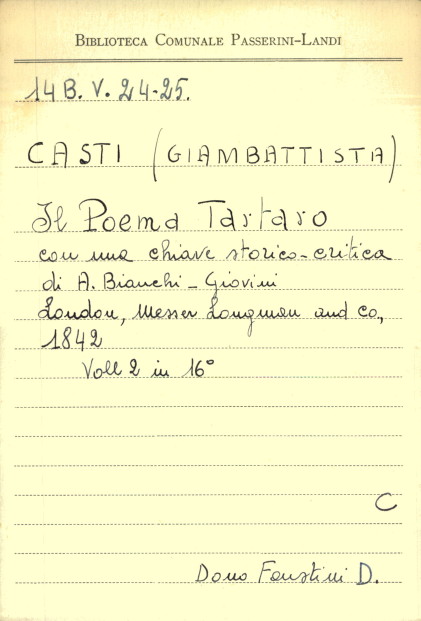 BIBLIOTECA COMUNALE PASSERINI-LANDI
14 B. V. 24-25.
CASTI (GIAMBATTISTA)
Il Poema Tartaro
con una chiave storico-critica
di A. Bianchi - Giovini
London, Messer Longman and Co,
1842
Voll 2 in 16°
C
Dono Faustini D.